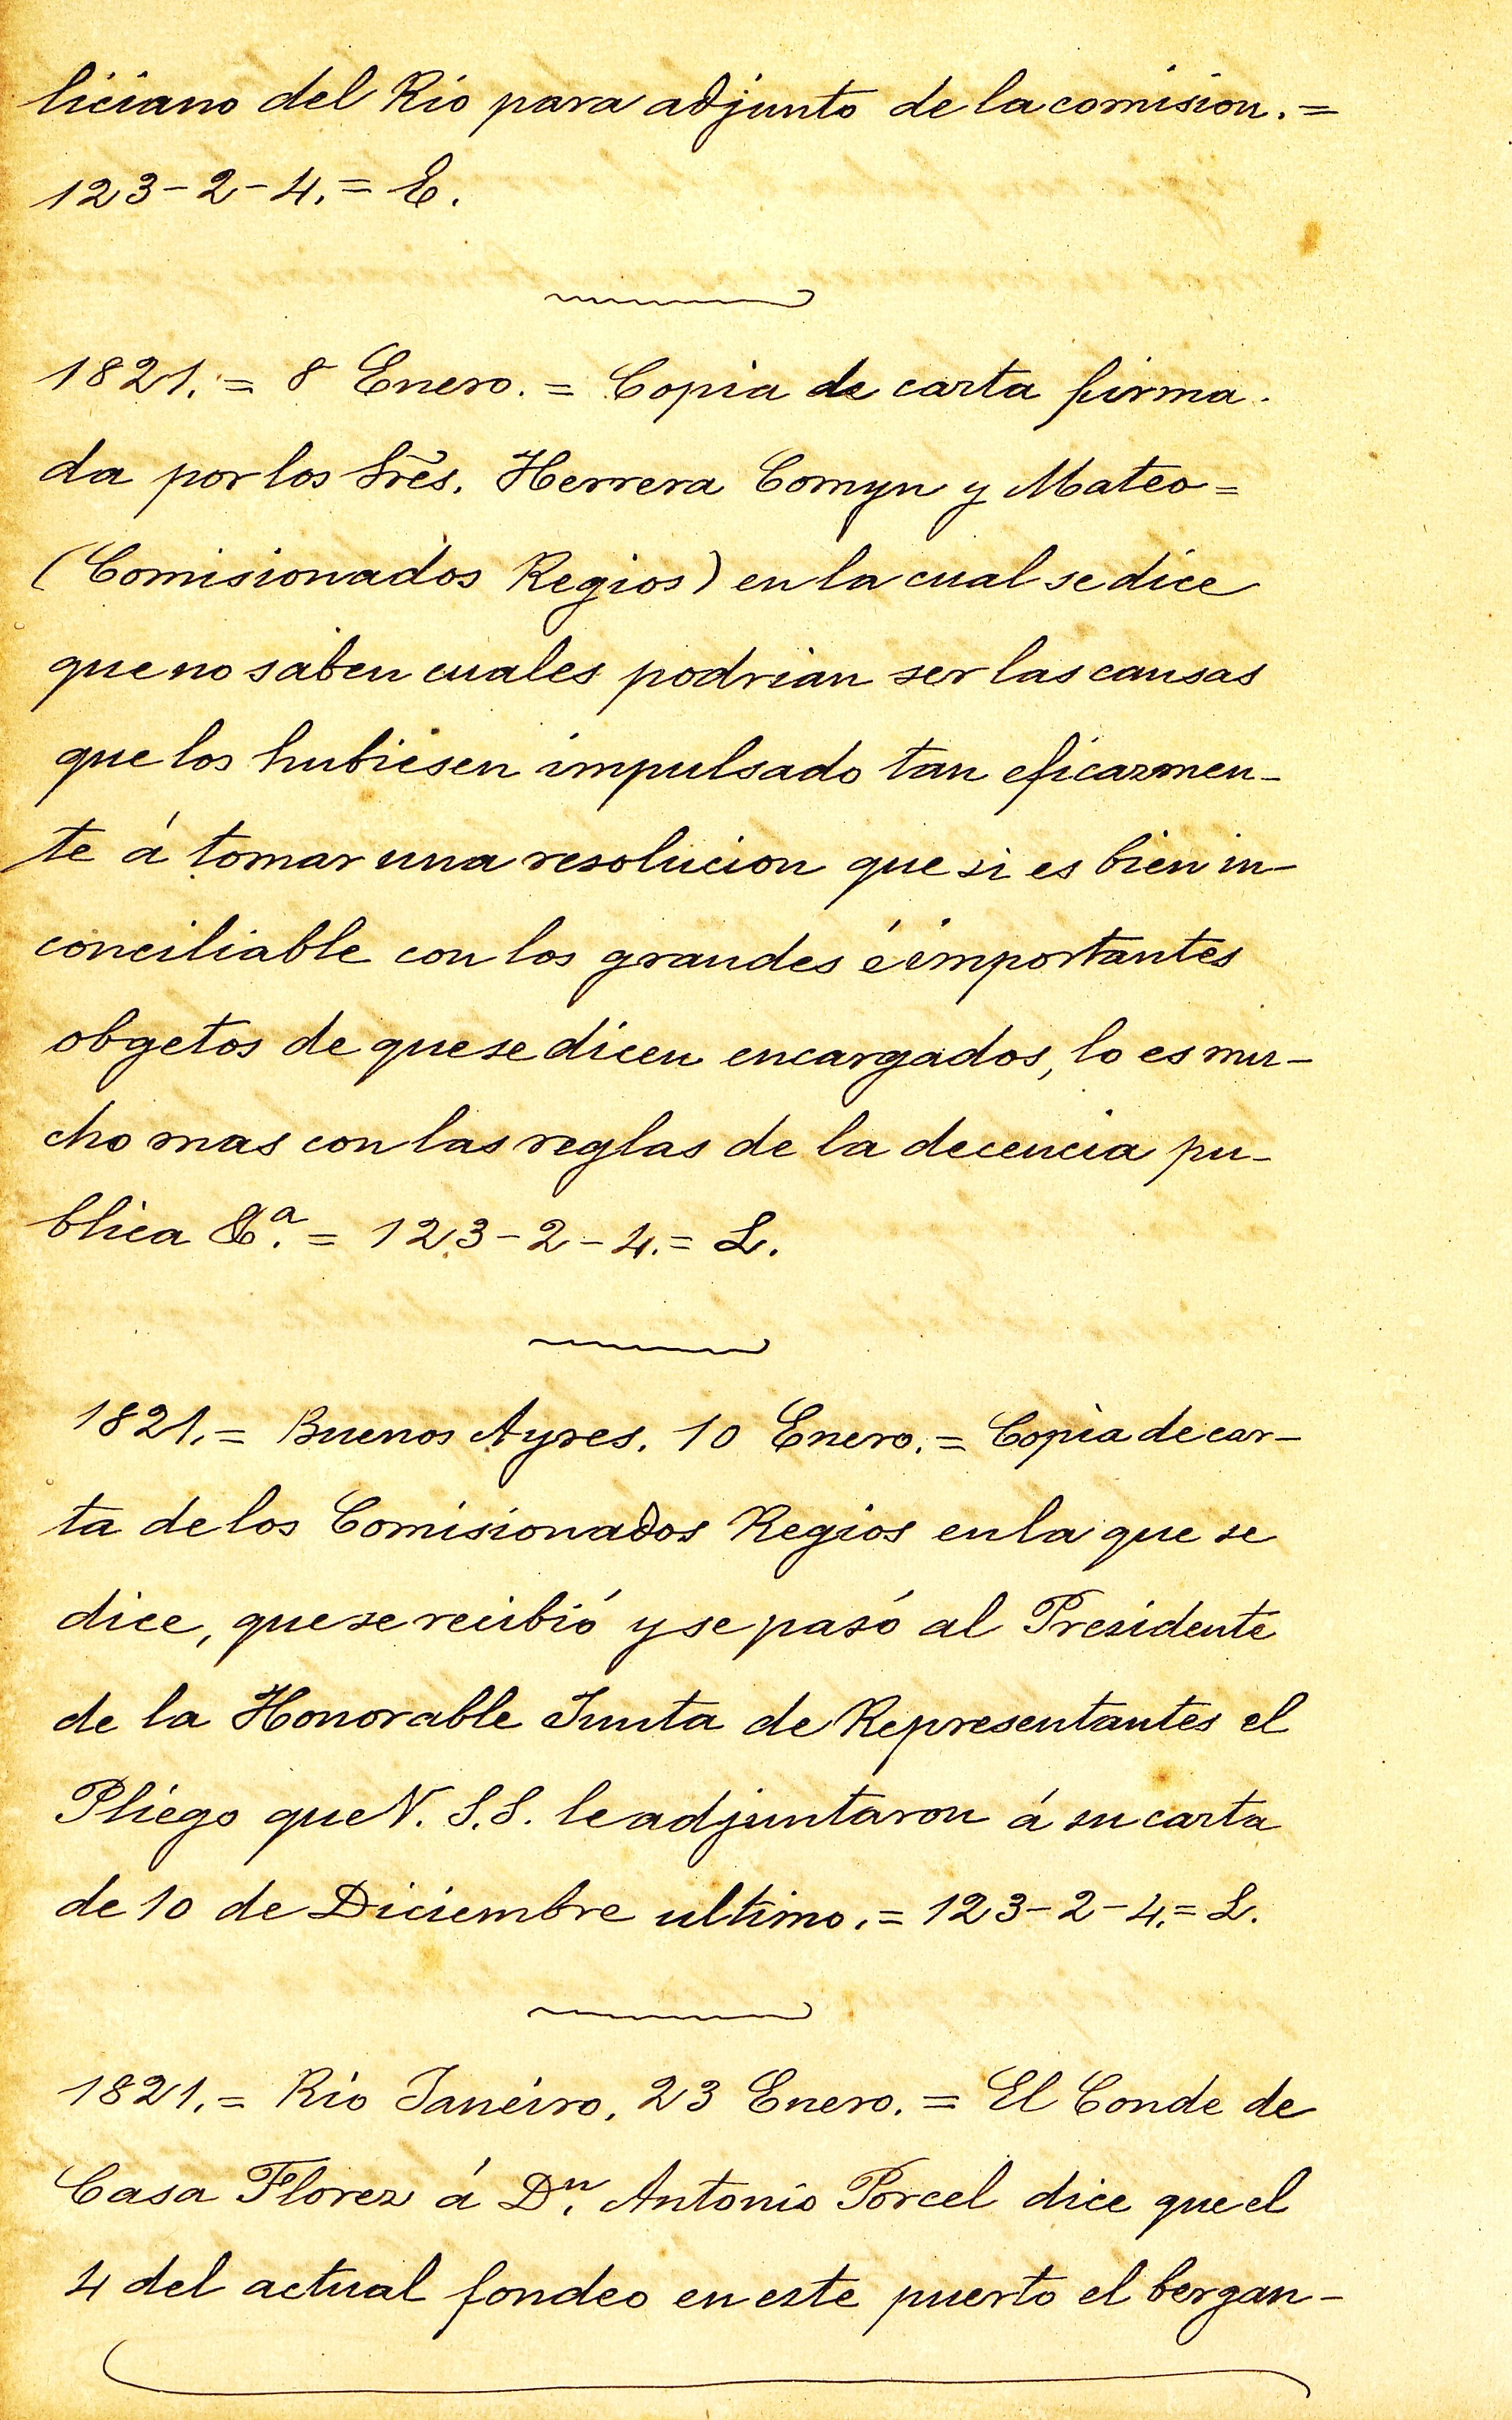 liciano del Rio para adjunto de la comision. =
123-2-4. = E.
1821. = 8 Enero. = Copia de carta firma-
da por los Srēs. Herrera Comyn y Mateo =
(Comisionados Regios) en la cual se dice
que no saben cuales podrian ser las causas
que los hubiesen impulsado tan eficazmen-
te á tomar una resolucion que si es bien in-
conciliable con los grandes é importantes
obgetos de que se dicen encargados, lo es mu-
cho mas con las reglas de la decencia pu-
blica &.ª = 123-2-4. = L.
1821. = Buenos Ayres. 10 Enero. = Copia de car-
ta de los Comisionados Regios en la que se
dice, que se recibió y se pasó al Presidente
de la Honorable Junta de Representantes el
Pliego que V. S.S. le adjuntaron á su carta
de 10 de Diciembre ultimo. = 123-2-4. = L.
1821. = Rio Janeiro. 23 Enero. = El Conde de
Casa Florez á D.ⁿ Antonio Porcel dice que el
4 del actual fondeo en este puerto el bergan-